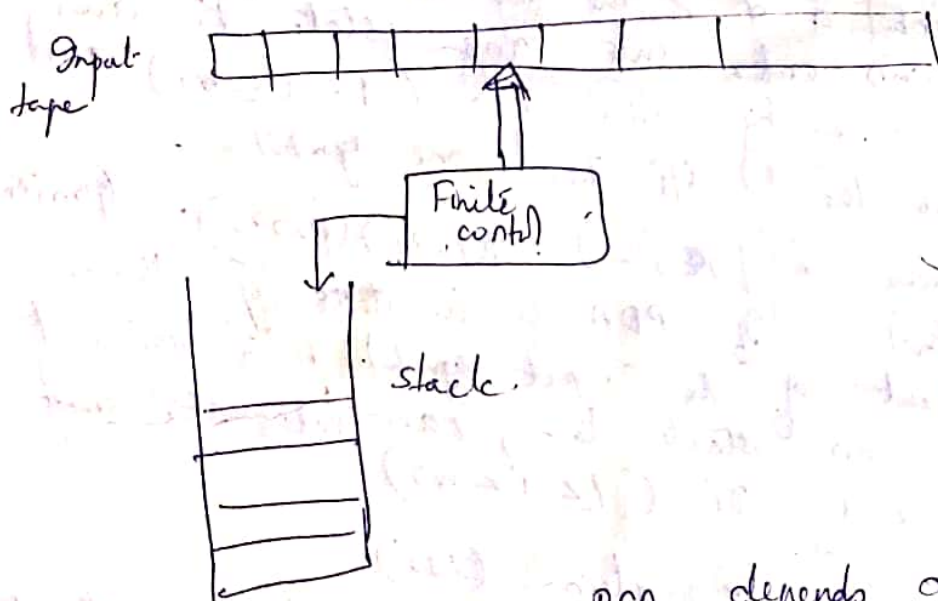 Input
tape
Finite
control
stack.
depends